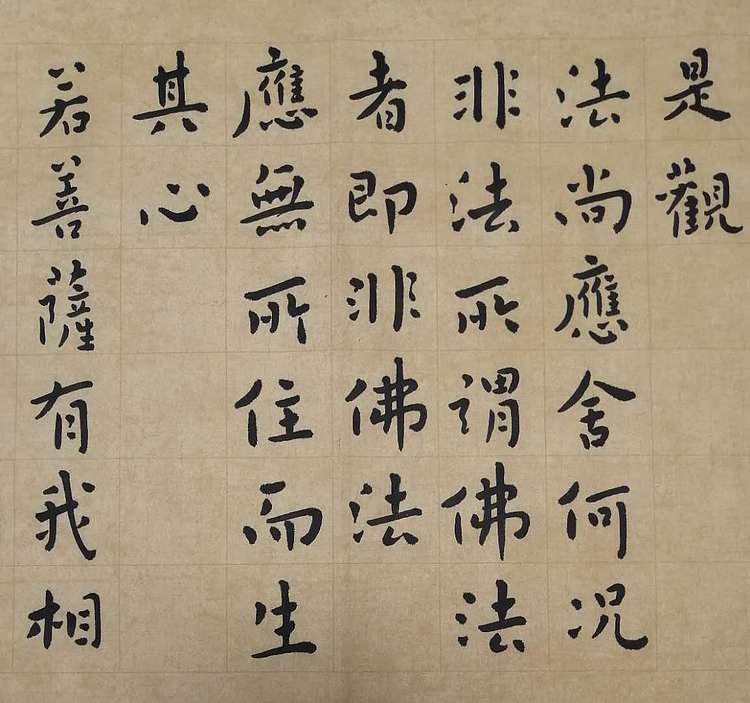 是觀
法尚應舍何况
非法所謂佛法
者即非佛法
應無所住而生
其心
若善薩有我相